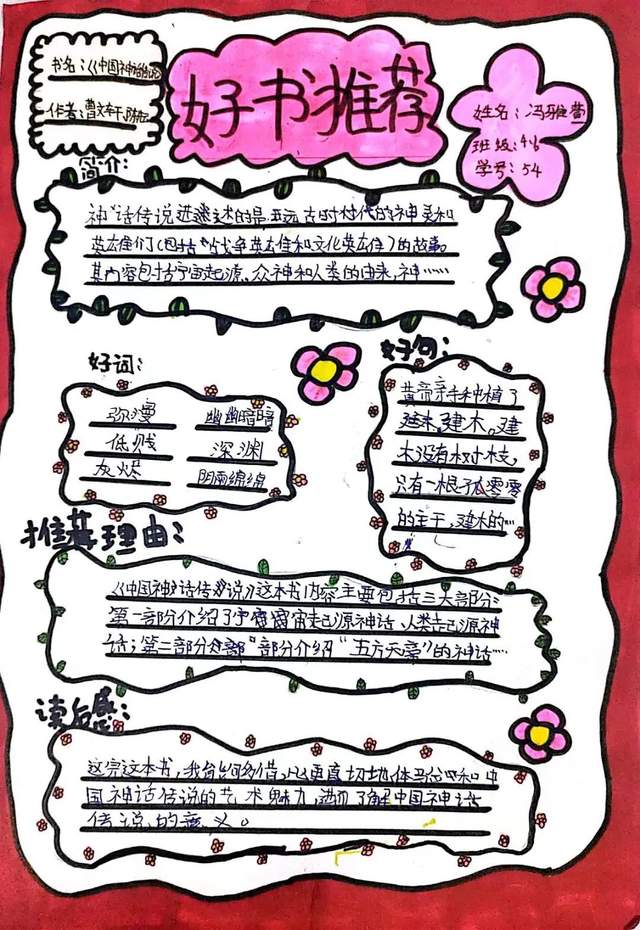 书名：《中国神话传说》
作者：曹文轩、陈
好书推荐
姓名：冯雅萱
班级：4.6
学号：54
简介：
神"话传说 述的是 远古时代的神灵和
英雄们（包括"战争英雄和文化英雄）的故事。
其内容包括宇宙起源、众神和人类的由来，神……
好词：
弥漫 幽幽暗暗
低贱 深渊
灰烬 阴雨绵绵
好句：
黄帝亲手种植了
建木，建
木没有树枝，
只有一根孤零零
的主干，建木的…
推荐理由：
《中国神话传说》这本书内容主要包括三大部分：
第一部分介绍了宇宙起源神话、人类起源神
话；第二部分 部分介绍"五方天帝"的神话…
读后感：
这完这本书，我 更真切地体 和中
国神话传说的艺术魅力，进而了解中国神话
传说的意义。